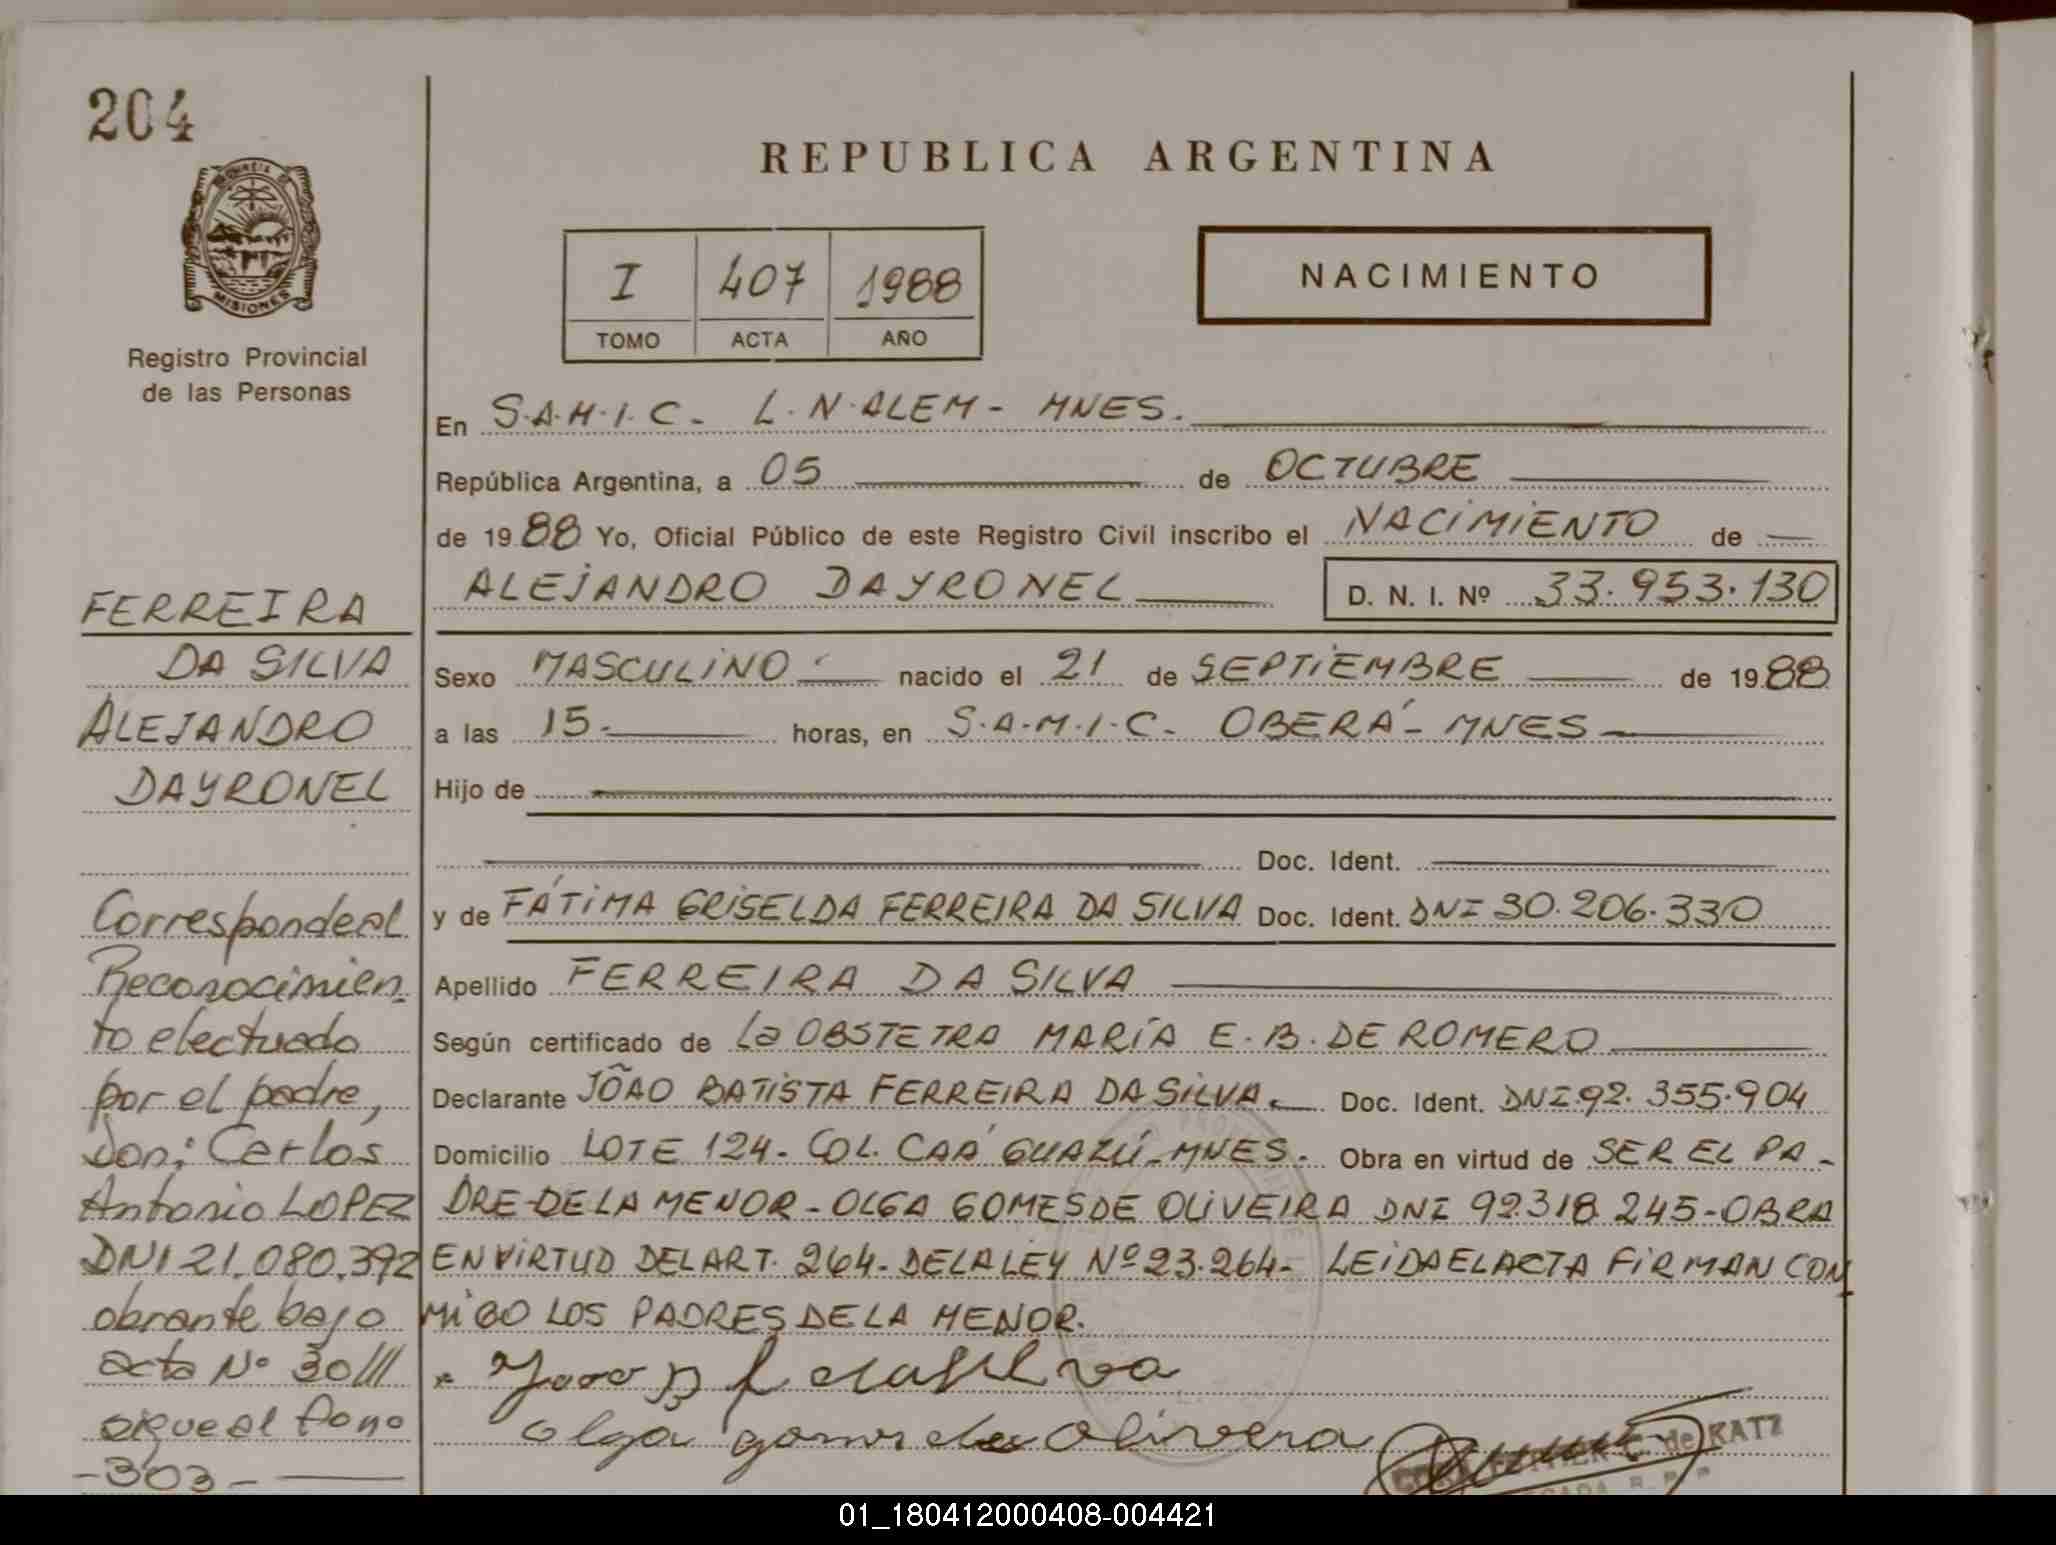 204
PROVINCIA DE
MISIONES
Registro Provincial
de las Personas
REPUBLICA ARGENTINA
I 407 1988
TOMO ACTA AÑO
NACIMIENTO
En S.A.M.I.C. L.N.ALEM - MNES.
República Argentina, a 05 de OCTUBRE
de 1988 Yo, Oficial Público de este Registro Civil inscribo el NACIMIENTO de
ALEJANDRO DAYRONEL D. N. I. Nº 33.953.130
Sexo MASCULINO nacido el 21 de SEPTIEMBRE de 1988
a las 15 horas, en S.A.M.I.C. OBERÁ - MNES
Hijo de
Doc. Ident.
y de FÁTIMA GRISELDA FERREIRA DA SILVA Doc. Ident. DNI 30.206.330
Apellido FERREIRA DA SILVA
Según certificado de La OBSTETRA MARÍA E. B. DE ROMERO
Declarante JÕAO BATISTA FERREIRA DA SILVA. Doc. Ident. DNI.92.355.904
Domicilio LOTE 124 - COL. CAÁ GUAZÚ - MNES. Obra en virtud de SER EL PA-
DRE DE LA MENOR - OLGA GOMES DE OLIVEIRA DNI 92318.245 - OBRA
EN VIRTUD DEL ART. 264 - DE LA LEY Nº 23.264 - LEIDA EL ACTA FIRMAN CON
MIGO LOS PADRES DE LA MENOR.
Joao B f da Silva
olga gomes de Olivera
de KATZ
FERREIRA
DA SILVA
ALEJANDRO
DAYRONEL
Corresponde al
Reconocimien-
to efectuado
por el padre,
Don: Carlos
Antonio LOPEZ
DNI 21.080.392
obrante bajo
acta Nº 30///
sigue al fono
-303-
01_180412000408-004421